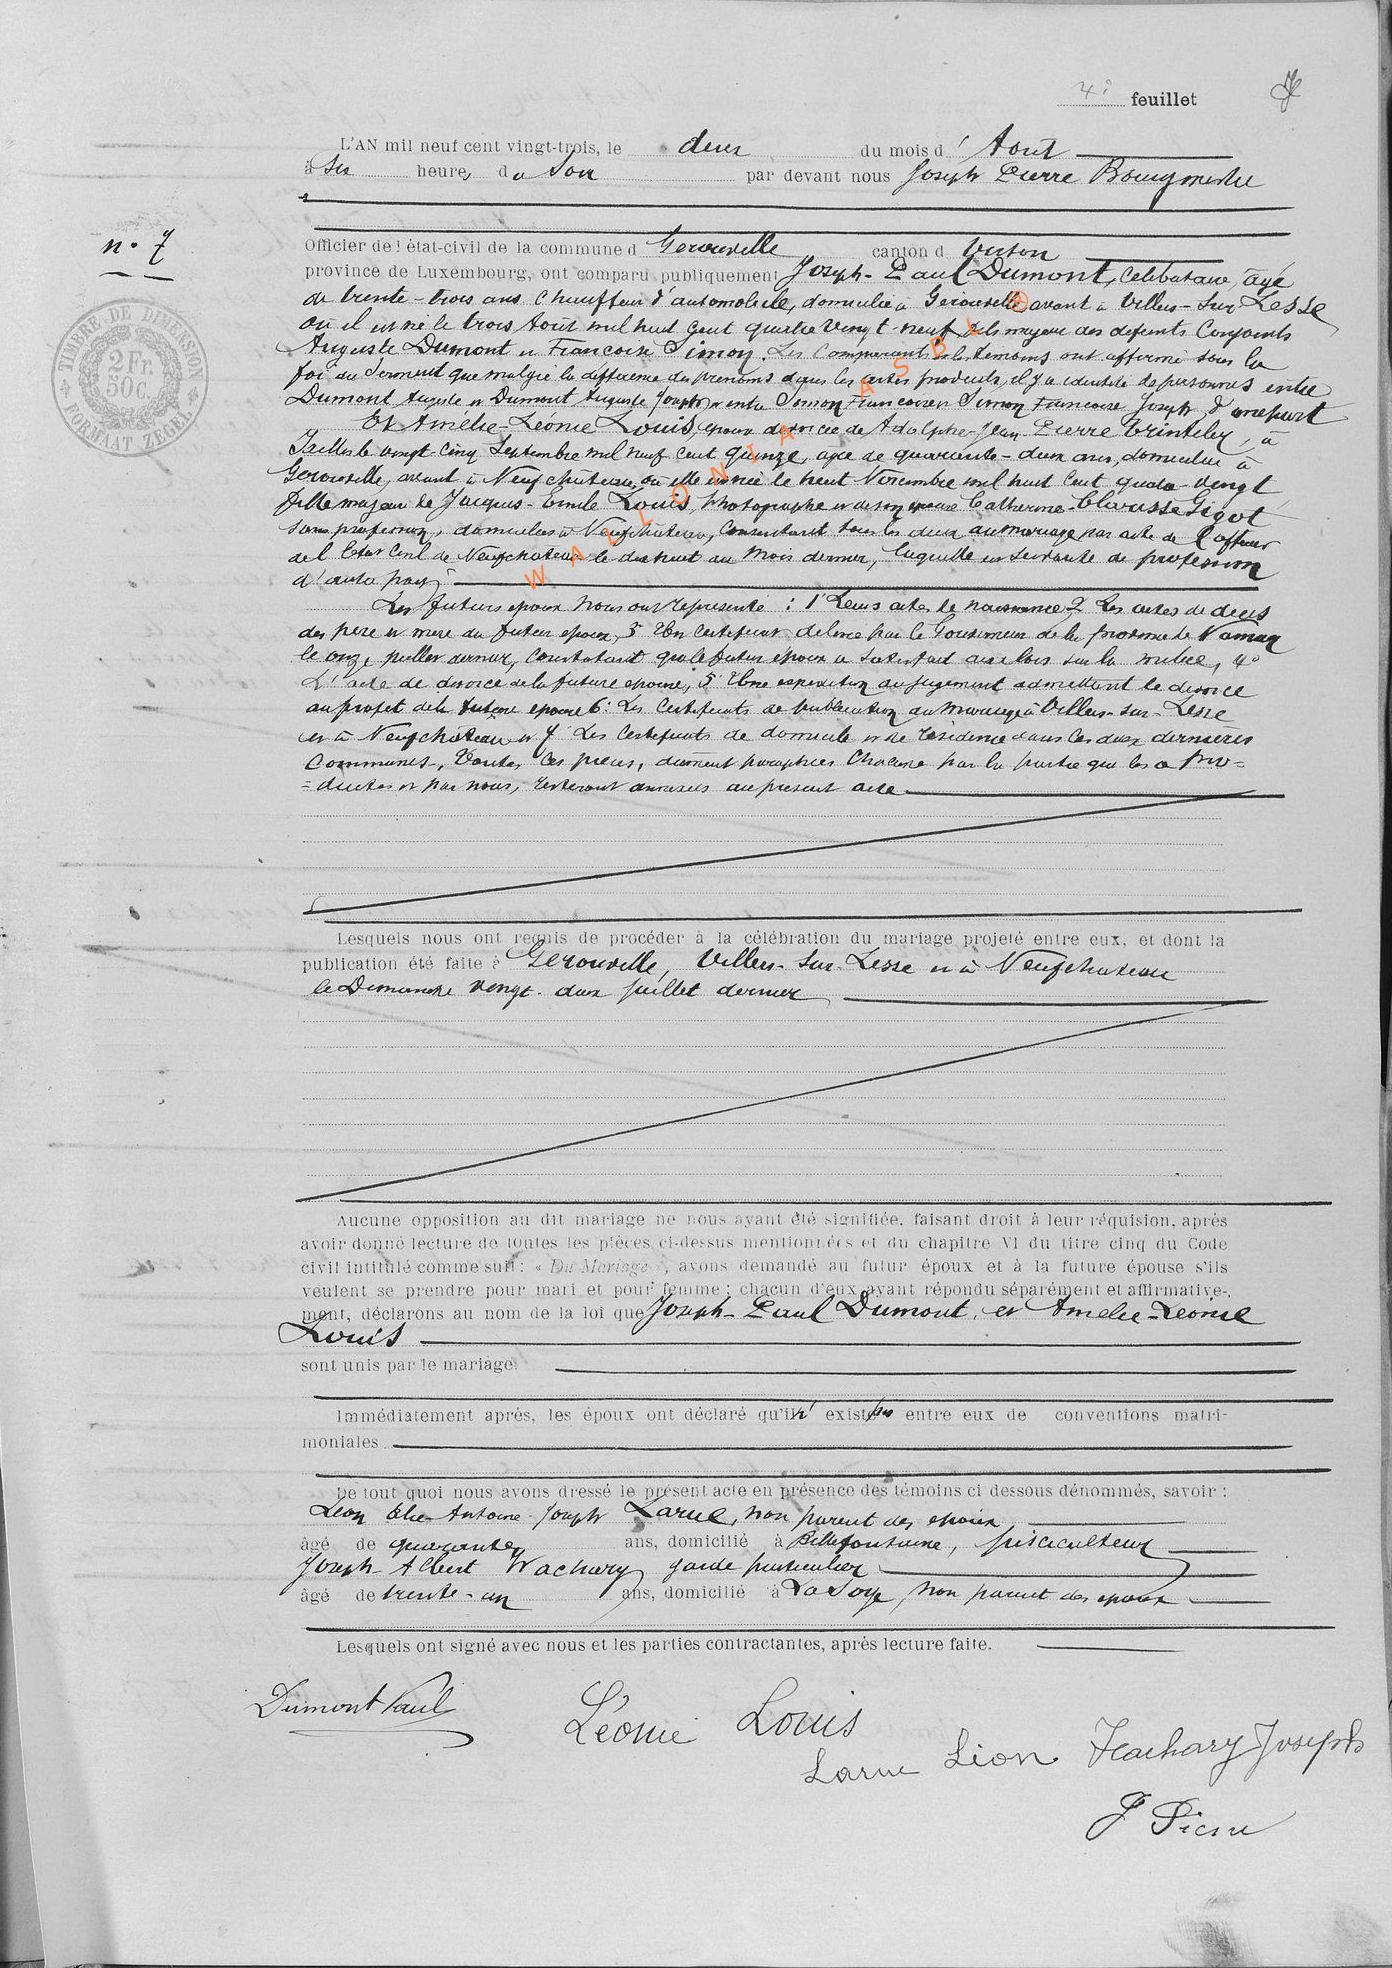 4e feuillet
L'AN mil neuf cent vingt-trois, le deux du mois d' Août
à six heures du Soir par devant nous Joseph Pierre Bourgmestre
n° 7
Officier de l'état-civil de la commune d Gerouville canton d Virton
province de Luxembourg, ont comparu publiquement Joseph-Paul Dumont, Célibataire, âgé
de trente-trois ans Chauffeur d'automobile, domicilié à Gerouville avant à Villers-Sur Lesse
où il est né le trois Août mil huit Cent quatre Vingt-neuf fils majeur des défunts Conjoints
Auguste Dumont et Francoise Simon. Les Comparants et les temoins ont affirmé sous la
foi du Serment que malgré la différence des prenoms dans les actes produits, il y a identité de personnes entre
Dumont Auguste et Dumont Auguste Joseph et entre Simon Francoise et Simon Francoise Joseph, d'une part
Et Amélie-Léonie Louis, épouse divorcée de Adolphe-Jean Pierre Trinteler, à
Ixelles le vingt Cinq Septembre mil neuf cent quinze, agée de quarante-deux ans, domiciliée à
Gerouville, avant à Neufchâteau, où elle est née le huit Novembre mil huit Cent quatre-vingt
fille majeure de Jacques-Emile Louis, photographe et de son épouse Catherine-Clarisse Gigot
sans profession, domiciliés à Neufchâteau, Consentant tous les deux au mariage par acte de l'officier
de l'Etat Civil de Neufchateau le dix huit du mois dernier, laquelle est Servante de profession
d'autre part.
Les futurs epoux nous ont représenté : 1° Leurs actes de naissance, 2° Les actes de décès
des père et mère du futur époux, 3° Un Certificat délivré par le Gouverneur de la province de Namur
le onze juillet dernier, Constatant que le futur époux a Satisfait aux lois sur la milice, 4°
L'acte de divorce de la future epouse, 5° Une expédition du jugement admettant le divorce
au profit de la future epouse 6° Les Certificats de publication du mariage à Villers-sur-Lesse
et à Neufchâteau et 7° Les Certificats de domicile et de résidence dans les deux dernières
Communes. Toutes Ces pièces, dûment paraphées Chacune par la partie qui les a pro=
=duites et par nous, resteront annexées au présent acte
Lesquels nous ont requis de procéder à la célébration du mariage projeté entre eux, et dont la
publication été faite à Gerouville, Villers-Sur Lesse et à Neufchateau
le Dimanche vingt-deux juillet dernier
Aucune opposition au dit mariage ne nous ayant été signifiée, faisant droit à leur réquision, après
avoir donné lecture de toutes les pièces ci-dessus mentionnées et du chapitre VI du titre cinq du Code
civil intitulé comme suit : « Du Mariage », avons demandé au futur époux et à la future épouse s'ils
veulent se prendre pour mari et pour femme ; chacun d'eux ayant répondu séparément et affirmative-
ment, déclarons au nom de la loi que Joseph-Paul Dumont, et Amélie-Léonie
Louis
sont unis par le mariage.
Immédiatement après, les époux ont déclaré qu'il n' existe pas entre eux de conventions matri-
moniales
De tout quoi nous avons dressé le présent acte en présence des témoins ci dessous dénommés, savoir :
Léon Elie-Antoine-Joseph Larue, non parent des epoux
âgé de quarante ans, domicilié à Bellefontaine, pisciculteur
Joseph-Albert Wachary garde particulier
âgé de trente-un ans, domicilié à La Soye, non parent des epoux
Lesquels ont signé avec nous et les parties contractantes, après lecture faite.
Dumont Paul
Léonie Louis
Larue Léon
Hachary Joseph
J Pierre
TIMBRE DE DIMENSION
2 Fr. 50 C.
FORMAAT ZEGEL
WALLONIA ASBL ©